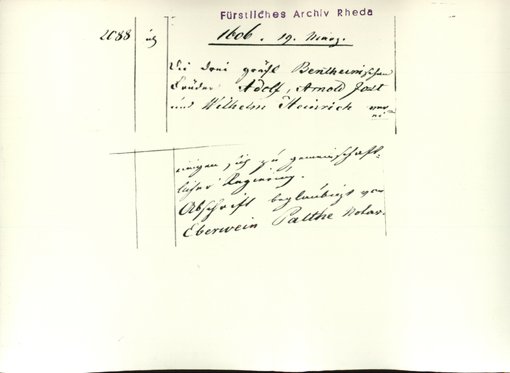 Fürstliches Archiv Rheda
2088
1606. 19. März.
Die drei gräfl Bentheimschen
Brüder Adolf, Arnold Jost
und Wilhelm Heinrich ver
ei
einigen sich zu gemeinschaft-
licher Regierung.
Abschrift beglaubigt von
Eberwein Palthe Notar.